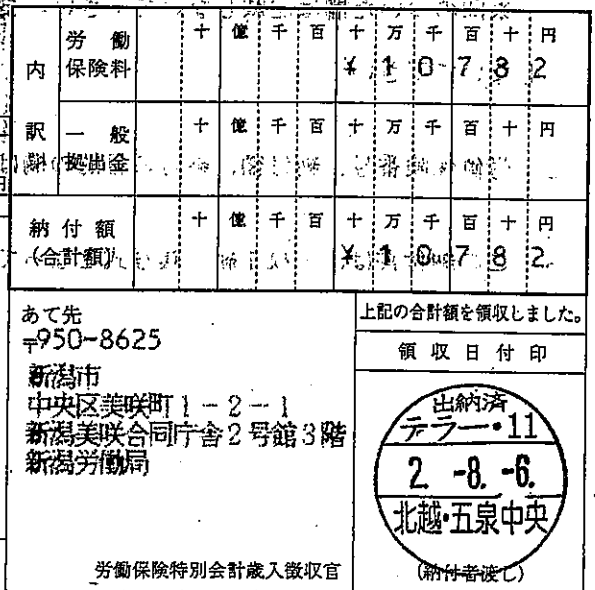 内訳
労働保険料
十 億 千 百 十 万 千 百 十 円
¥ 1 0 7 8 2
一般拠出金
十 億 千 百 十 万 千 百 十 円
納付額
(合計額)
十 億 千 百 十 万 千 百 十 円
¥ 1 0 7 8 2
あて先
〒950-8625
新潟市
中央区美咲町1-2-1
新潟美咲合同庁舎2号館3階
新潟労働局
労働保険特別会計歳入徴収官
上記の合計額を領収しました。
領収日付印
出納済
テラー・11
2. -8. -6.
北越・五泉中央
(納付者渡し)